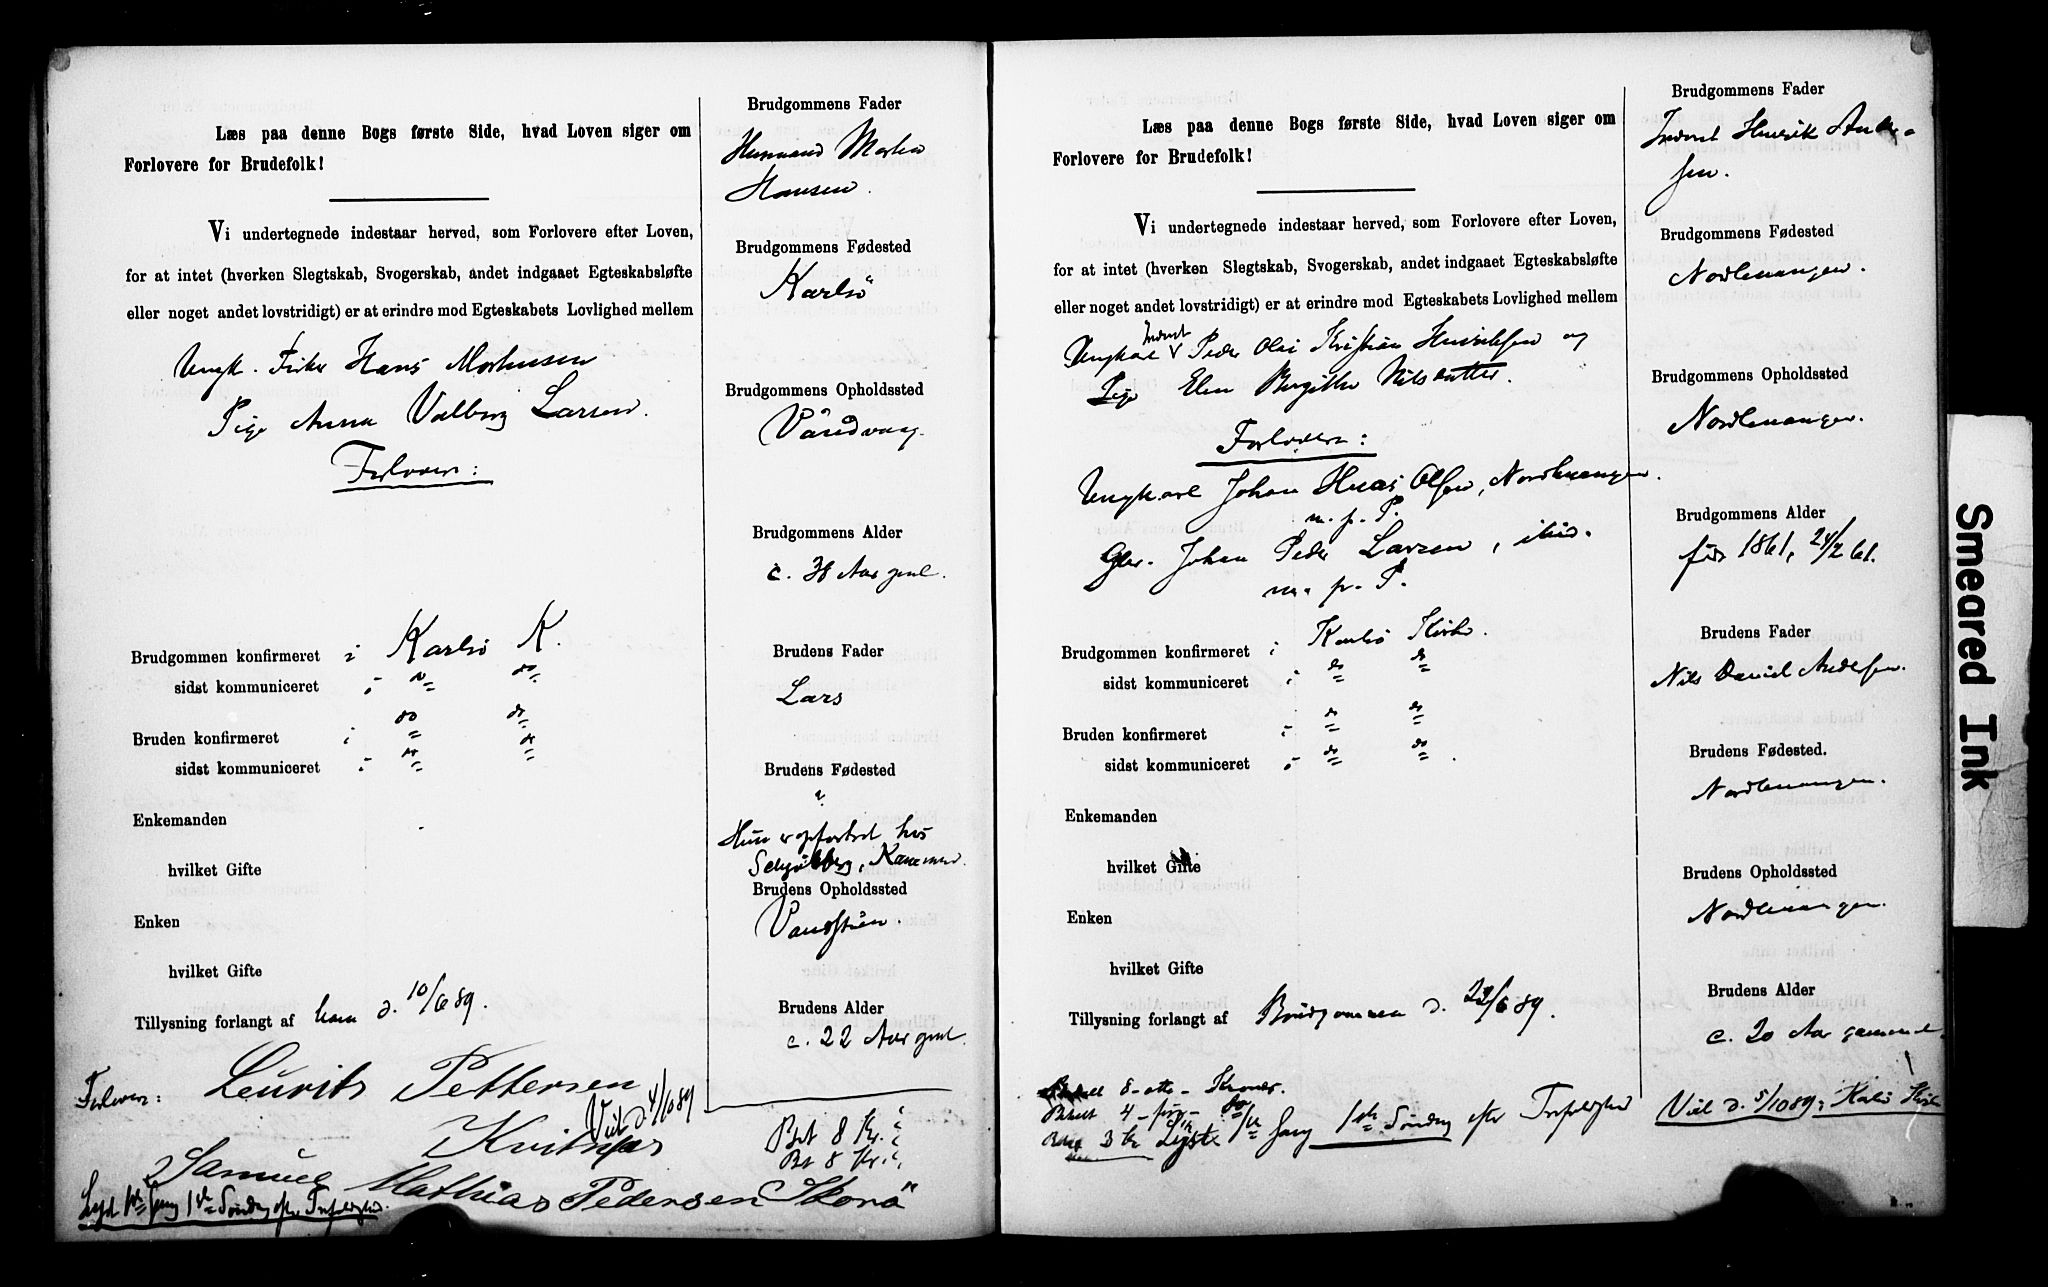 Læs paa denne Bogs første Side, hvad Loven siger om
Forlovere for Brudefolk!
Vi undertegnede indestaar herved, som Forlovere efter Loven,
for at intet (hverken Slegtskab, Svogerskab, andet indgaaet Egteskabsløfte
eller noget andet lovstridigt) er at erindre mod Egteskabets Lovlighed mellem
Ungk. Fisker Hans Mortensen
Pige Anna Valborg Larsen.
Forlovere:
Brudgommen konfirmeret i Karlsö K.
sidst kommuniceret i do do
Bruden konfirmeret i do do
sidst kommuniceret i do do
Enkemanden
hvilket Gifte
Enken
hvilket Gifte
Tillysning forlangt af ham d. 10/6 89.
Forlovere: Leurits Pettersen
Kvitnes
Viet d 4/10 89
2 Samuel Mathias Pedersen Skorö
Lyst 1ste Gang 1ste Søndag efter Trefoldighed.
Brudgommens Fader
Husmand Morten
Hansen.
Brudgommens Fødested
Karlsö
Brudgommens Opholdssted
Vandvaag
Brudgommens Alder
c. 38 Aar gml.
Brudens Fader
Lars
Brudens Fødested
?
Hun er opfostret hos
Schjølberg, Kammen.
Brudens Opholdssted
Vandstuen.
Brudens Alder
c. 22 Aar gml.
Bet 8 Kr.
Bet 8 Kr.
Læs paa denne Bogs første Side, hvad Loven siger om
Forlovere for Brudefolk!
Vi undertegnede indestaar herved, som Forlovere efter Loven,
for at intet (hverken Slegtskab, Svogerskab, andet indgaaet Egteskabsløfte
eller noget andet lovstridigt) er at erindre mod Egteskabets Lovlighed mellem
Inderst
Ungkarl Peder Olai Kristian Henriksen og
Pige Elen Bergitte Nilsdatter.
Forlovere:
Ungkarl Johan Hans Olsen, Nordlenangen.
m. p. P.
Gbr. Johan Peder Larsen, ibid.
m. p. P.
Brudgommen konfirmeret i Karlsö Kirke.
sidst kommuniceret i do do
Bruden konfirmeret i do do
sidst kommuniceret i do do
Enkemanden
hvilket Gifte
Enken
hvilket Gifte
Tillysning forlangt af Brudgommen d. 22/6 89.
8 - otte - Kroner.
Betalt 4 - fire - do
3 Kr Lyste 1ste Gang 1ste Søndag efter Trefoldighed
Brudgommens Fader
Inderst Henrik Andersen.
Brudgommens Fødested
Nordlenangen.
Brudgommens Opholdssted
Nordlenangen.
Brudgommens Alder
før 1861, 24/2 61.
Brudens Fader
Nils Daniel Andersen.
Brudens Fødested.
Nordlenangen.
Brudens Opholdssted
Nordlenangen.
Brudens Alder
c. 20 Aar gammel
Viet d. 5/10 89 i Karlsö Kirke
Smeared Ink